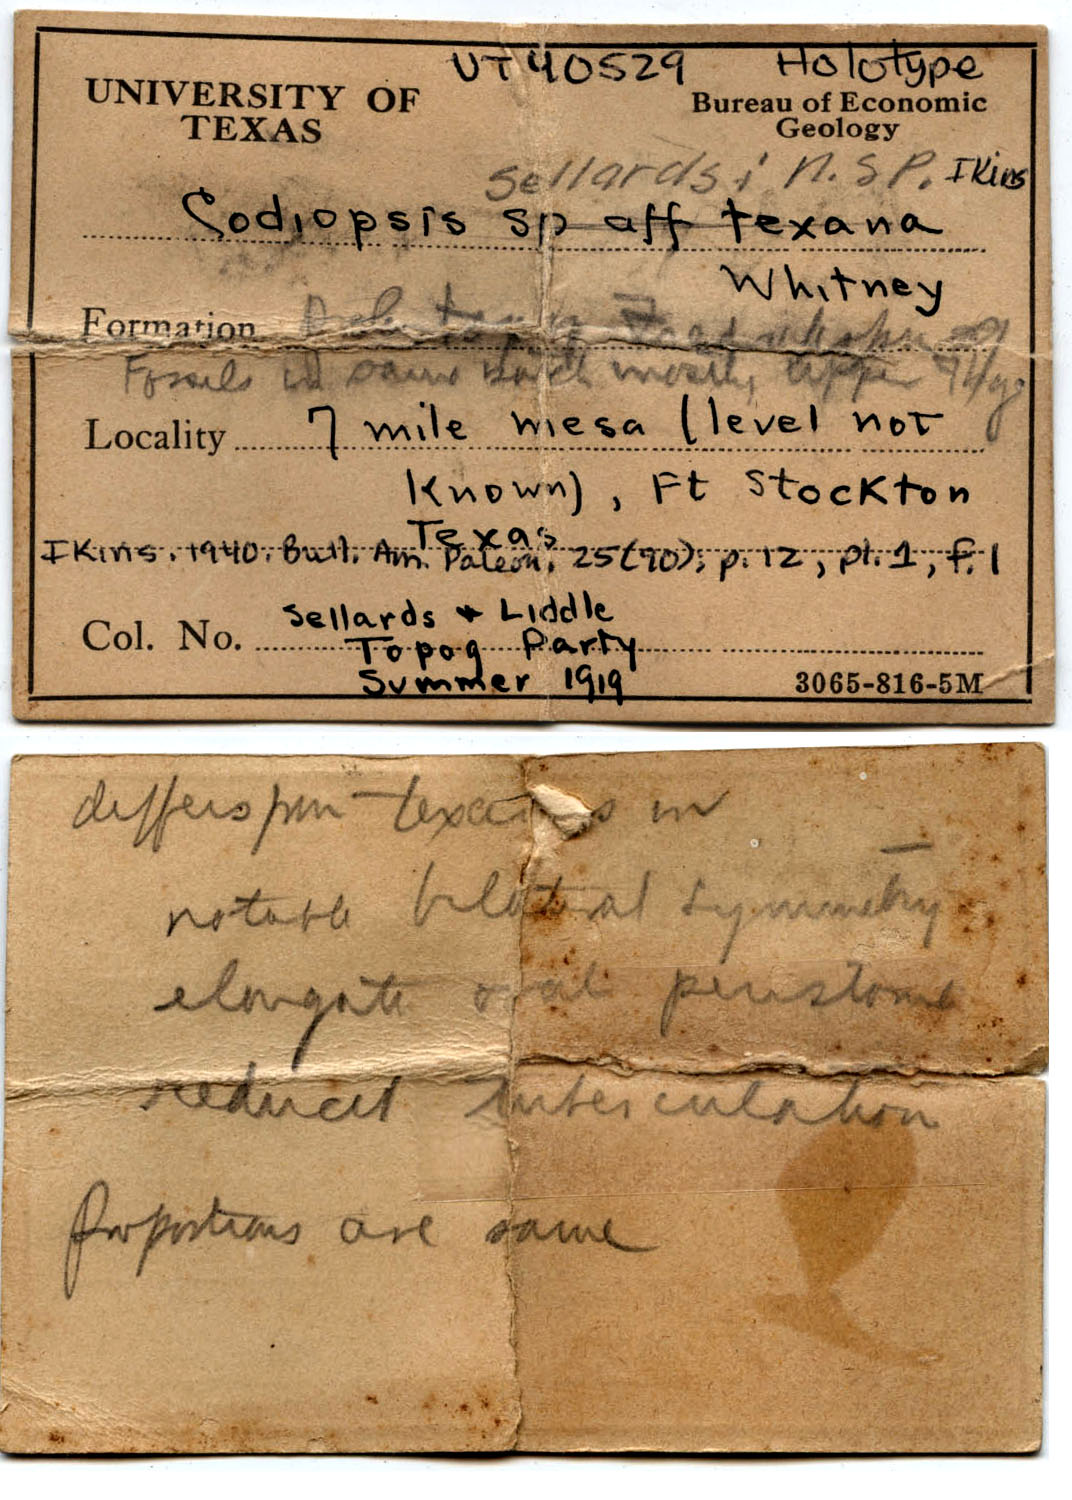 UT40529 Holotype
UNIVERSITY OF
TEXAS
Bureau of Economic
Geology
Sellardsi n. sp. Ikins
Codiopsis sp aff texana
Whitney
Formation
Fossils in same batch mostly upper
Locality 7 mile mesa (level not
Known), Ft Stockton
Texas
Ikins. 1940. Bull. Am. Paleon. 25(90); p. 12, pt. 1, f. 1
Sellards + Liddle
Col. No. Topog Party
Summer 1919
3065-816-5M
differs from texanas in
notable bilateral symmetry
elongate oval peristome
reduced tuberculation
Proportions are same